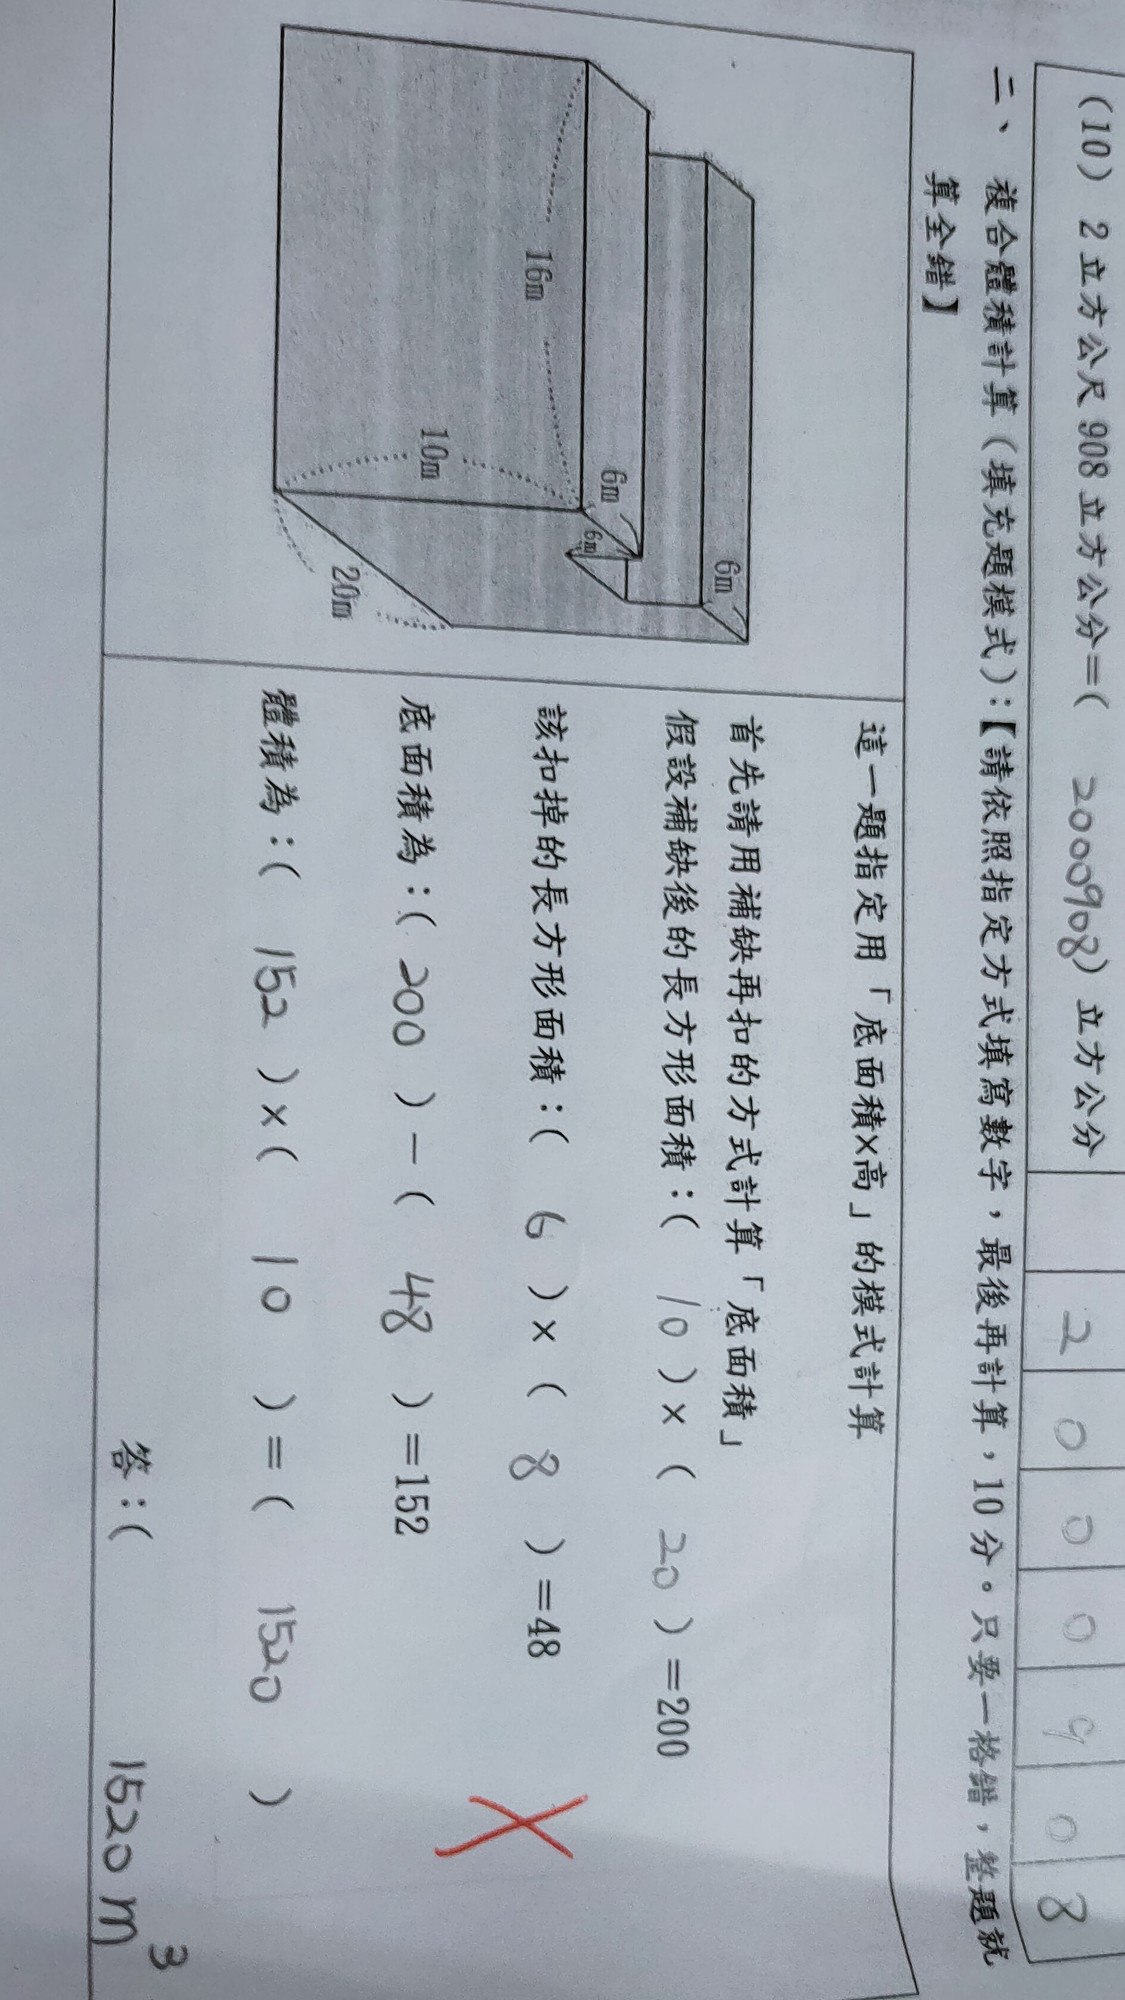 (10) 2立方公尺908立方公分=( 2000908 )立方公分
2 0 0 0 9 0 8
二、 複合體積計算(填充題模式):【請依照指定方式填寫數字,最後再計算,10分。只要一格錯,整題就
算全錯】
16m
10m
20m
6m
6m
6m
這一題指定用「底面積×高」的模式計算
首先請用補缺再扣的方式計算「底面積」
假設補缺後的長方形面積:( 10 )×( 20 )=200
該扣掉的長方形面積:( 6 )×( 8 )=48
底面積為:( 200 )-( 48 )=152
體積為:( 152 )×( 10 )=( 1520 )
答:( 1520 m³